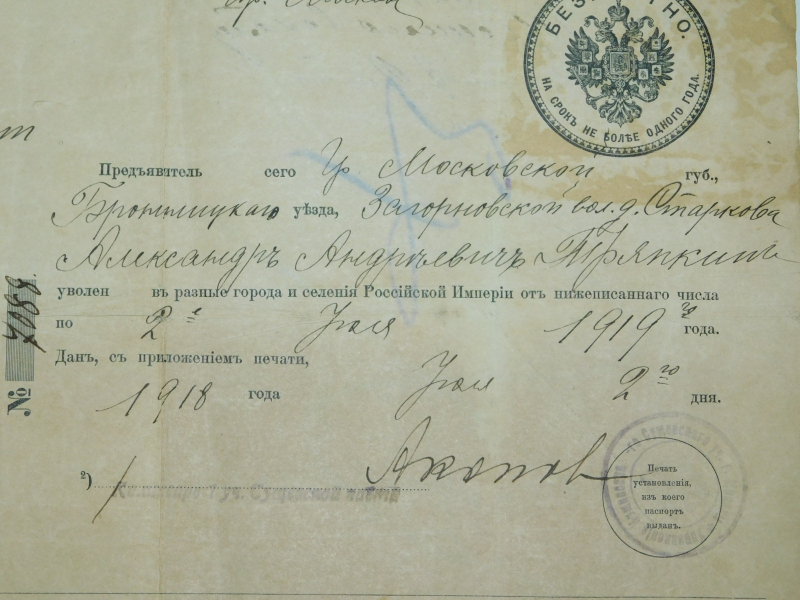 гр. Москов
БЕЗПЛАТНО.
НА СРОКЪ НЕ БОЛѢЕ ОДНОГО ГОДА.
Предъявитель сего Гр Московской губ.,
Бронницкаго уѣзда, Загорновской вол. д. Старкова
Александръ Андреевичъ Тряпкинъ
уволен въ разные города и селенія Российской Имперіи отъ нижеписаннаго числа
по 2е Июля 1919го года.
Данъ, съ приложеніемъ печати,
1918 года Июля 2го дня.
№ 7088.
Акопов
²)
Печать
установленія,
изъ коего
паспортъ
выданъ.